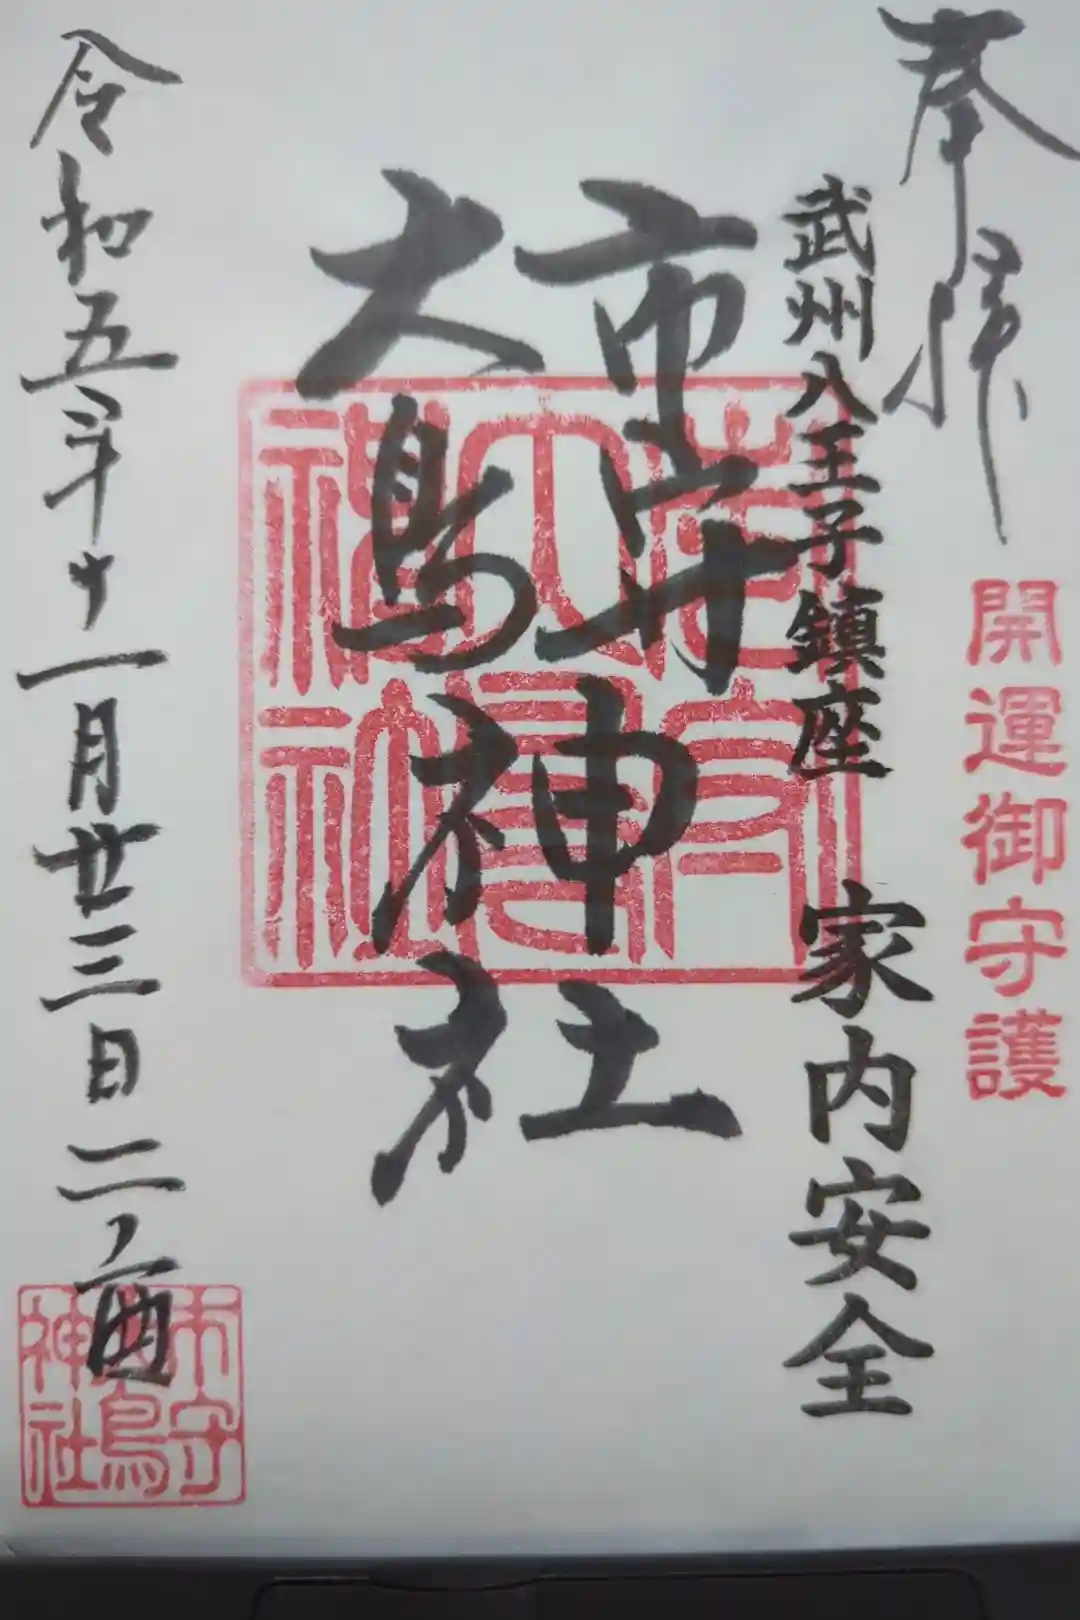 奉拝
開運御守護
武州八王子鎮座 家内安全
市守
大鳥神社
令和五年十一月廿三日二ノ酉
市守
大鳥
神社
市守
大鳥
神社